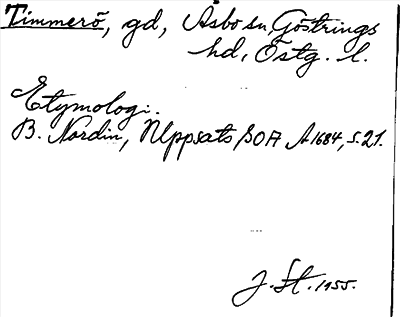 Timmerö, gd, Åsbo sn, Göstrings
hd, Östg. l.
Etymologi:
B. Nordin, Uppsats SOA A1684, s. 21.
J. St. 1955.